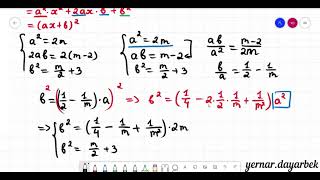 = a²·x² + 2ax·b + b²
= (ax+b)²
{ a² = 2m
2ab = 2(m-2)
b² = m/2 + 3
{ a² = 2m
ab = m-2
b² = m/2 + 3
ab/a² = (m-2)/2m
b/a = 1/2 - 1/m
b² = ((1/2 - 1/m)·a)² => b² = (1/4 - 2·1/2·1/m + 1/m²) a²
=> { b² = (1/4 - 1/m + 1/m²)·2m
b² = m/2 + 3
yernar.dayarbek